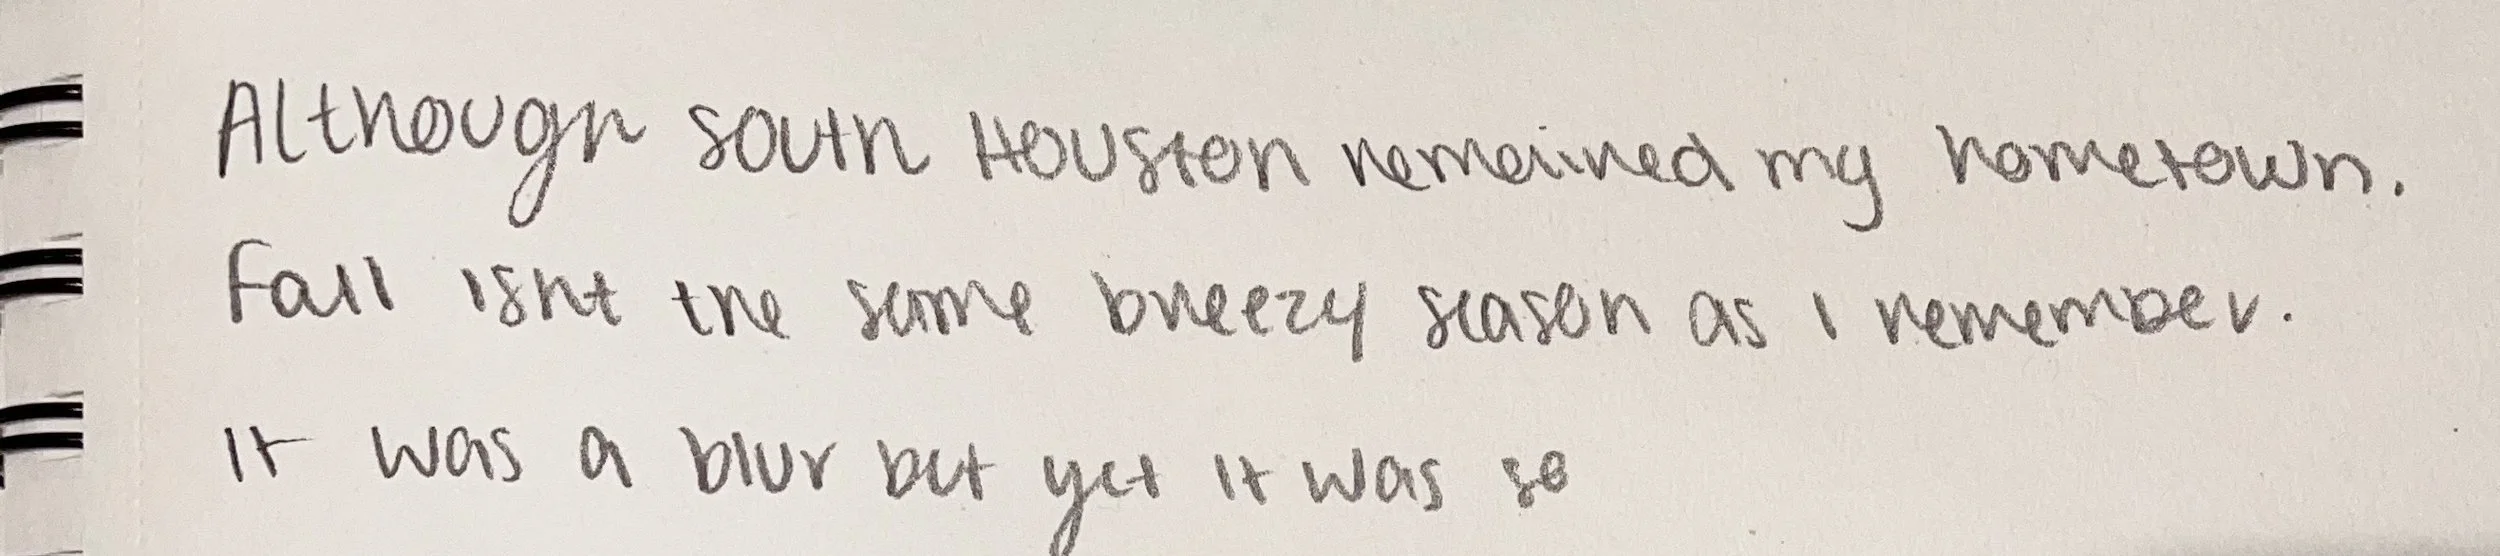 Although south Houston remained my hometown.
Fall isnt the same breezy season as I remember.
It was a blur but yet it was so